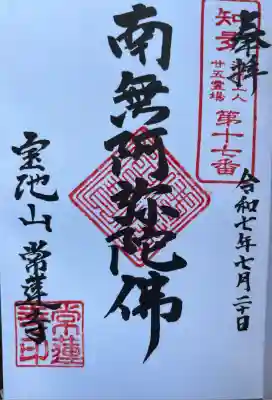 奉拝
知多
上人
廿五霊場
第十七番
令和七年七月二十日
南無阿弥陀佛
宝池山 常蓮寺
常蓮
寺印